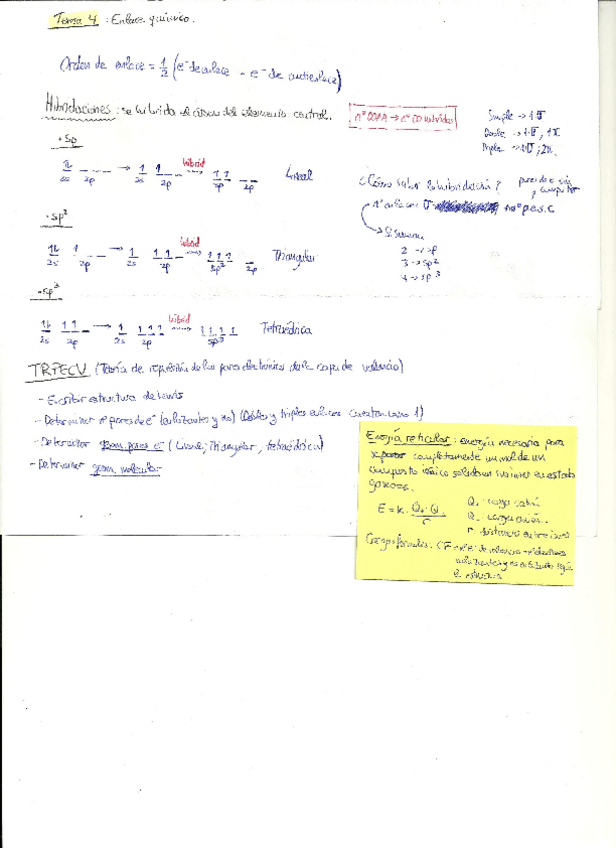 Tema 4 : Enlace químico.
Orden de enlace = 1/2 (e⁻ de enlace - e⁻ de antienlace)
Hibridaciones : se hibrida el átomo del elemento central.
nº OOAA → nº OO híbridos
Simple → 1σ
Doble → 1σ, 1π
Triple → 1σ; 2π.
· sp
2s 2p → 2s 2p hibrid → 2p Lineal
¿Cómo saber la hibridación?
pares de e⁻ sin compartir
nº enlaces σ + nº p.e.s.c
Si suman
2 → sp
3 → sp²
4 → sp³
· sp²
2s 2p → 2s 2p hibrid → sp² 2p Triangular
· sp³
2s 2p → 2s 2p hibrid → sp³ Tetraédrica
TRPECV (Teoría de repulsión de los pares electrónicos de la capa de valencia)
- Escribir estructura de Lewis
- Determinar nº pares de e⁻ (enlazantes y no) (Dobles y triples enlaces cuentan como 1)
- Determinar geom. pares e⁻ (Lineal, Triangular, tetraédrica)
- Determinar geom. molecular
Energía reticular : energía necesaria para
separar completamente un mol de un
compuesto iónico sólido en sus iones en estado
gaseoso.
E = k · Q₊ · Q₋ / r
Q₊ carga catión
Q₋ carga anión.
r distancia entre iones
Cargas formales: CF = nº e⁻ de valencia -
según
la estructura